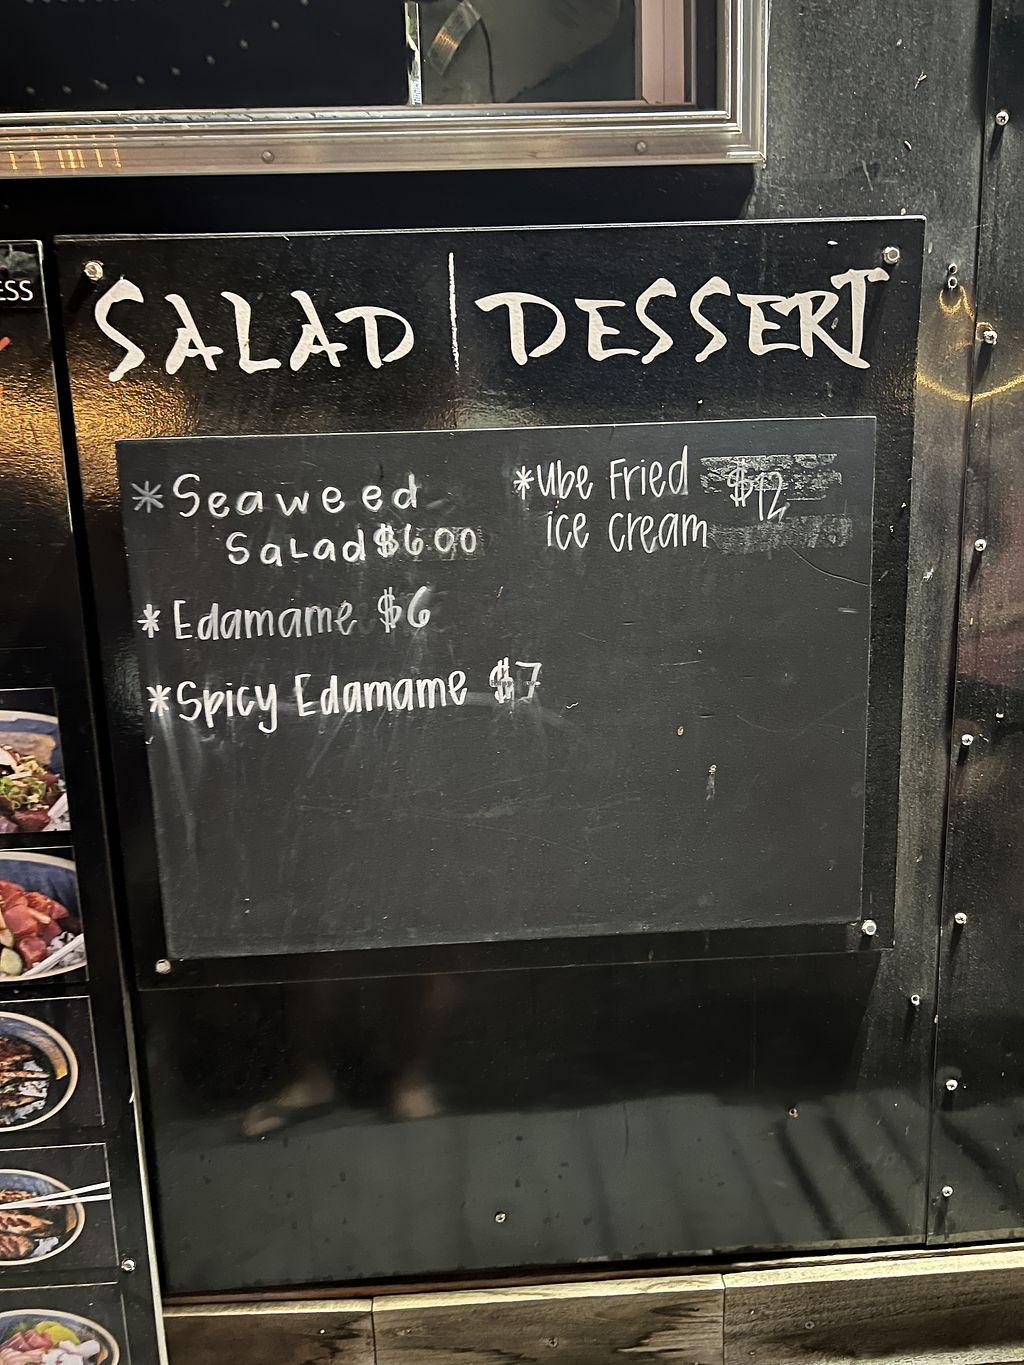 ESS
SALAD | DESSERT
*Seaweed
Salad $6.00
*Edamame $6
*Spicy Edamame $7
*Ube Fried $12
ice cream